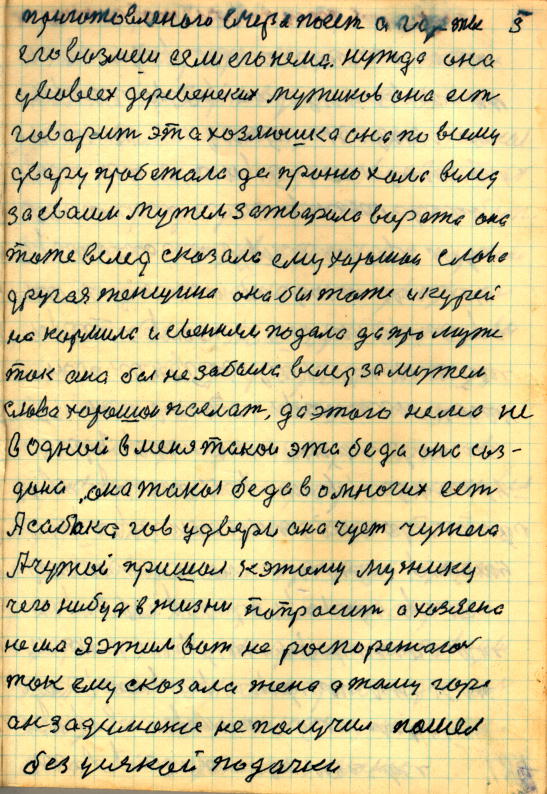 приготовленого вчера поест а горе тае 5
гговозмеш сели его нема. нужда она
увовсех деревенских мужиков она ест
говарит эта хозяюшка она по всему
двару пробежала да промохола вслед
за сваим мужем затварила варата она
тоже вслед сказала ему харошая слова
другая женщина она бы тоже и курей
на кормила и свенням подала да про муже
ток она бы не забыла вслед за мужем
слова харошои послат, да этого нема не
в одной в меня такои эта беда она соз-
дана, она такая беда вомногих ест
А сабака гов у двере она чует чужога
А чужой пришол к этому мужику
чего нибуд в жизни папрасит а хозяена
нема я этим вот не роспорежаюс
ток ему сказала жена а тому горе
ан зади може не получил пошел
без усякой подачки